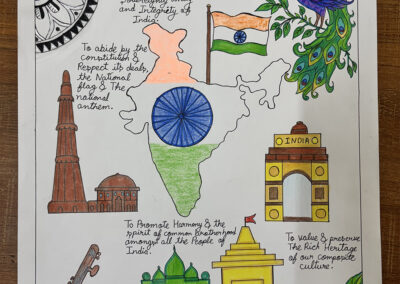 Sovereignty Unity
and Integrity of
India.
To abide by the
constitution &
Respect its deals,
the National
flag & The
national
anthem.
INDIA
To Promote Harmony & the
spirit of common Brotherhood
amongst all the People of
India.
To value & preserve
The Rich Heritage
of our composite
culture.